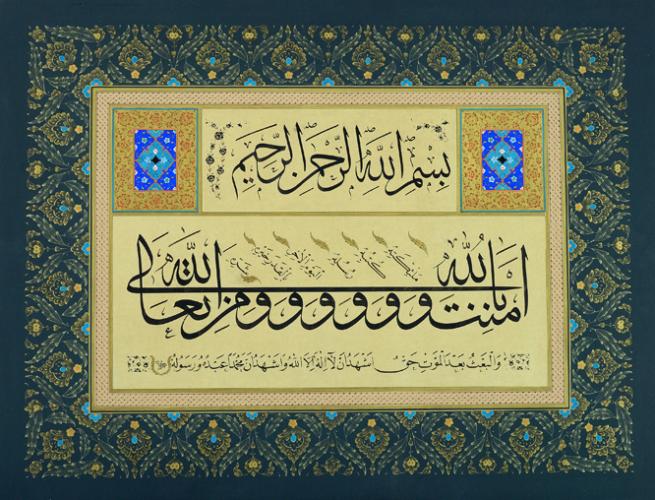 بِسْمِ اللهِ الرَّحْمٰنِ الرَّحِيمِ
اٰمَنْتُ بِاللهِ وَ ملائكته وَ كتبه وَ رسله وَ اليوم الآخر وَ بالقدر خيره وَ شره مِنَ اللهِ تَعَالٰى
وَالْبَعْثُ بَعْدَ الْمَوْتِ حَقٌّ اَشْهَدُ اَنْ لَا اِلٰهَ اِلَّا اللهُ وَاَشْهَدُ اَنَّ مُحَمَّدًا عَبْدُهُ وَرَسُولُهُ